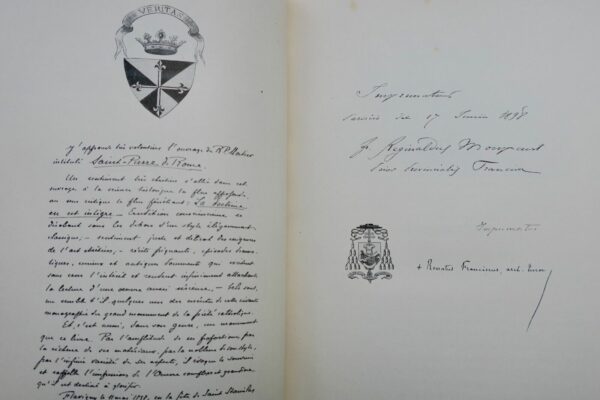 VERITAS
J'approuve très volontiers l'ouvrage du R.P. Mortier
intitulé Saint-Pierre de Rome.
Un sentiment très chrétien s'allie dans cet
ouvrage à la science historique la plus
en critique la plus La doctrine
en est intègre. — Érudition consciencieuse se
dérobant sous les dehors d'un style élégamment
classique, — sentiment juste et délicat des
de l'art chrétien, — récits épisodes
connus et antiques qui
sans cesse l'intérêt et rendent infiniment attachante
la lecture d'une œuvre aussi sérieuse, — tels sont,
me semble-t-il quelques uns des mérites de cette
monographie du grand monument de la piété catholique.
Et, c'est aussi, dans son genre, un monument
que ce livre. Par l'amplitude de ses proportions par
la richesse de ses matériaux par la noblesse de son style,
par l'infinie variété de ses aspects, il évoque le souvenir
et rappelle l'impression de l'Œuvre complexe et grandiose
qu'il est destiné à glorifier.
Flavigny le mai 1898. en la fête de Saint Stanislas
Imprimatur
die 17 1898
Fr. Reginaldus Monpeurt
Prior Provincialis Franciæ
Imprimatur
+ Renatus Franciscus, arch. Turon.